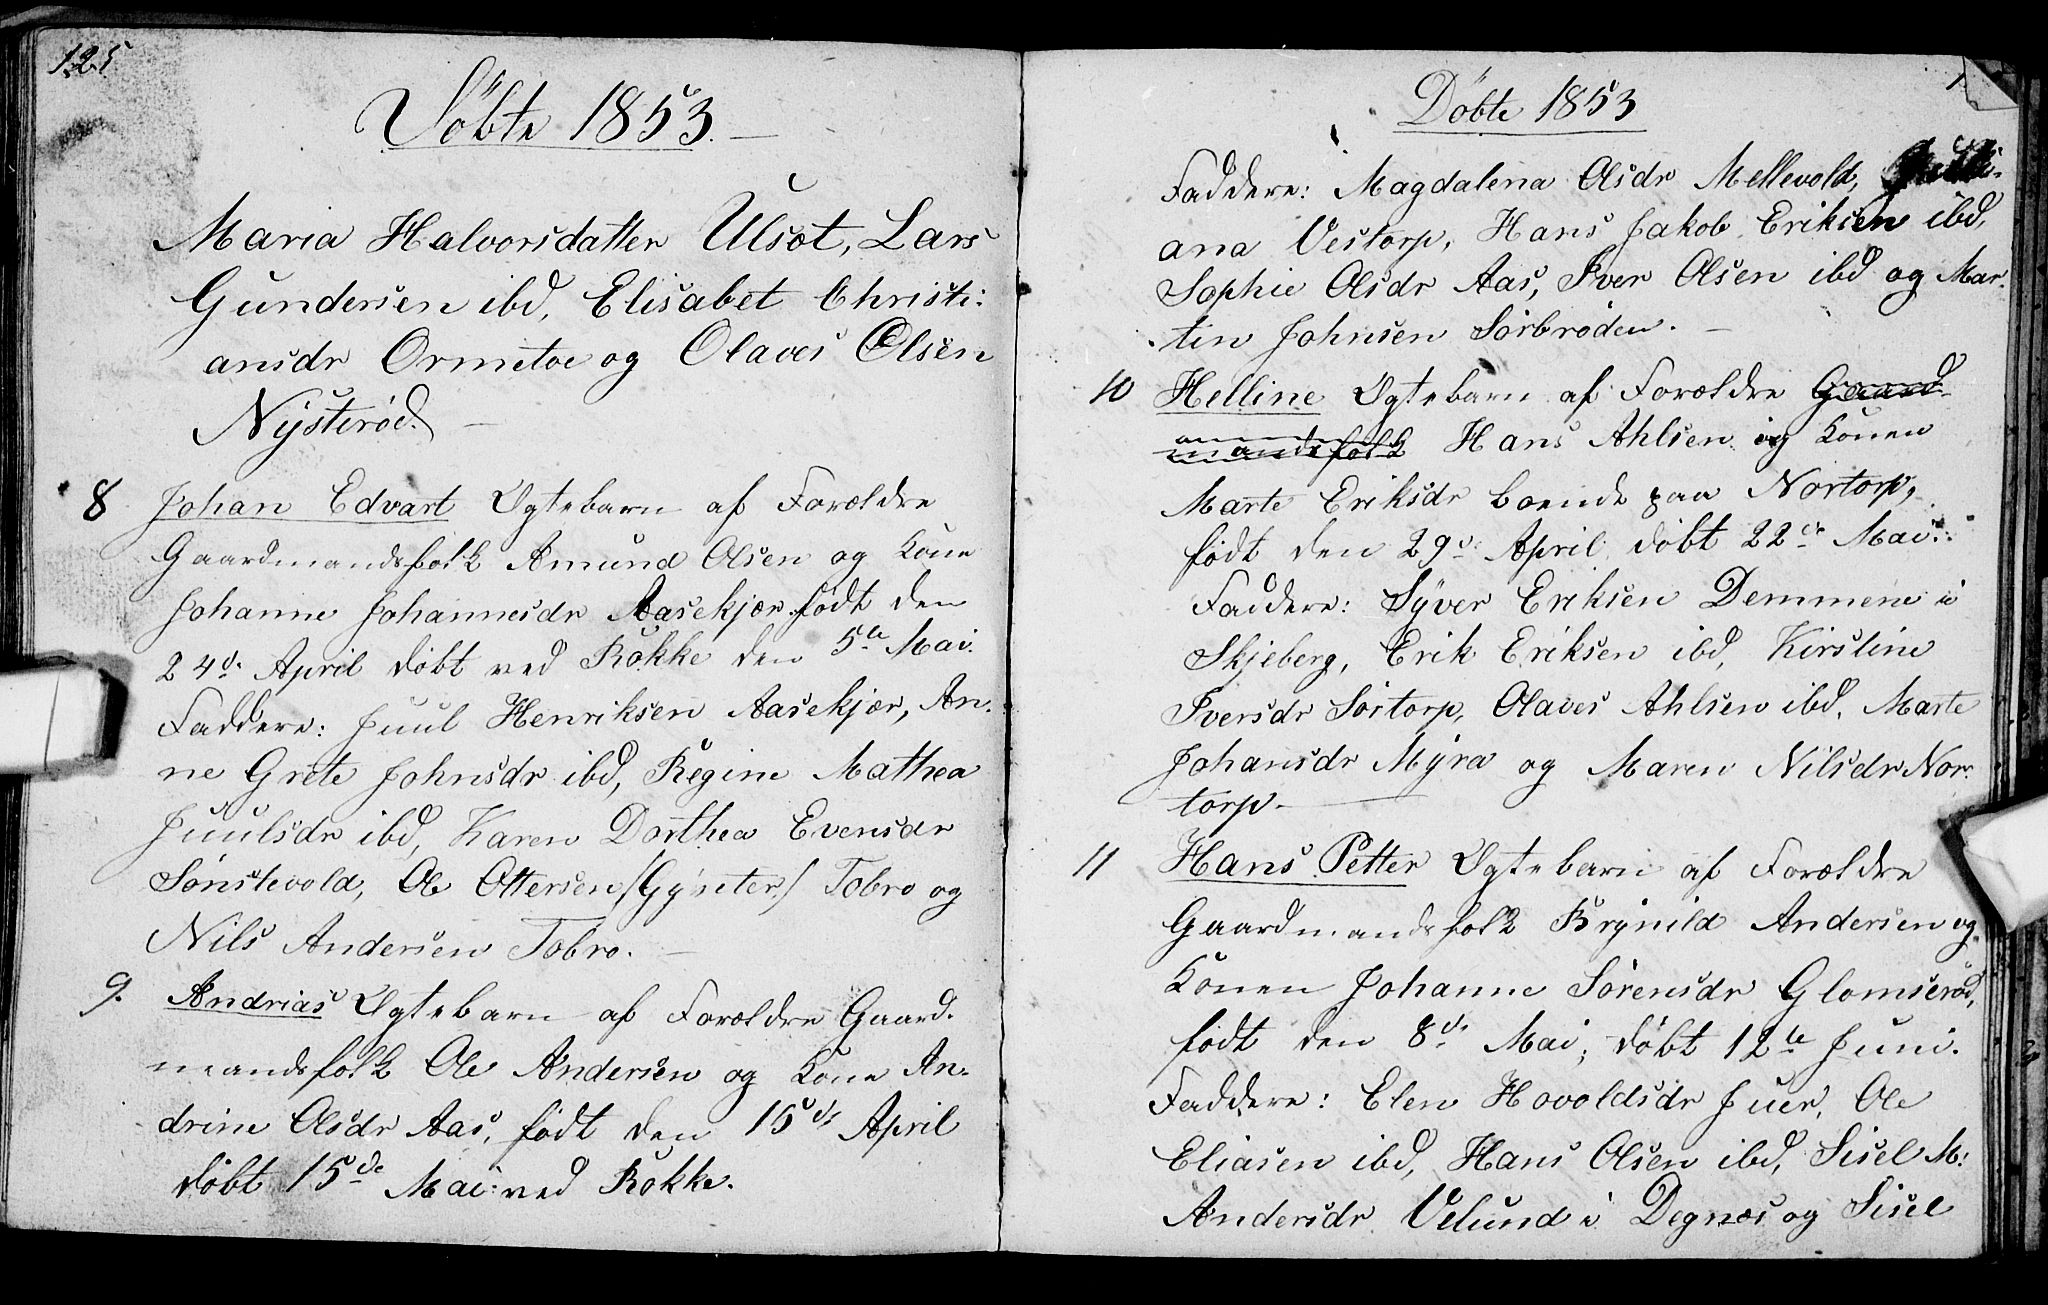 125
Døbte 1853.
Maria Halvorsdatter Ulsøt, Lars
Gundersen ibd, Elisabet Christi:
ansdr Ormetoe og Olaves Olsen
Nysterød.
8 Johan Edvart Ægtebarn af Forældre
Gaardmandsfolk Amund Olsen og Kone
Johanne Johannesdr Aasekjær født den
24d. April døbt ved Rokke den 5te Mai.
Faddere: Juul Henriksen Aasekjær, An-
ne Grete Johnsdr ibd, Regine Mathea
Juulsdr ibd, Karen Dorthea Evensdr
Sønstevold, Ole Ottersen /Gynter/ Tobro og
Nils Andersen Tobro.
9. Andrias Ægtebarn af Forældre Gaard-
mandsfolk Ole Andersen og Kone An-
drine Olsdr Aas, født den 15de April
døbt 15de Mai ved Rokke.
Døbte 1853
Faddere: Magdalena Olsdr Mellevold,
ana Vestorp, Hans Jakob Eriksen ibd,
Sophie Olsdr Aas, Iver Olsen ibd og Mar-
tin Johnsen Sørbrøden.
10 Helline Ægtebarn af Forældre Gaard-
mandsfolk Hans Ahlsen og Konen
Marte Eriksdr boende paa Nortorp,
født den 29d. April døbt 22de Mai.
Faddere: Syver Eriksen Demmene i
Skjeberg, Erik Eriksen ibd, Kirstine
Iversdr Sørtorp, Olaves Ahlsen ibd, Marte
Johansdr Myra og Maren Nilsdr Nor-
torp.
11 Hans Petter Ægtebarn af Forældre
Gaardmandsfolk Brynild Andersen og
Konen Johanne Sørensdr Glomserød,
født den 8d. Mai, døbt 12te Juni.
Faddere: Elen Hovoldsdr Juer, Ole
Eliasen ibd, Hans Olsen ibd, Sisel M:
Andersdr Velund i Degnæs og Sisel